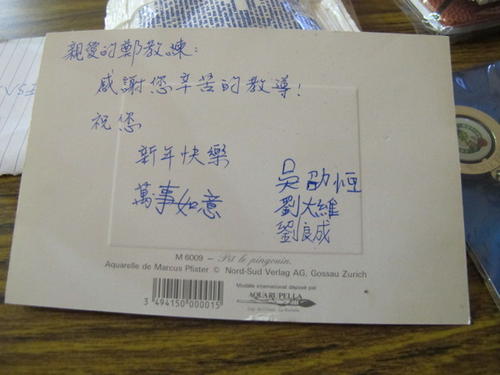 親愛的鄭教練:
感謝您辛苦的教導!
祝您
新年快樂
萬事如意
吳劭恒
劉大維
劉良成
M 6009 – Pit le pingouin.
Aquarelle de Marcus Pfister © Nord-Sud Verlag AG, Gossau Zurich
Modèle international déposé par
AQUARUPELLA
3 494150 000015